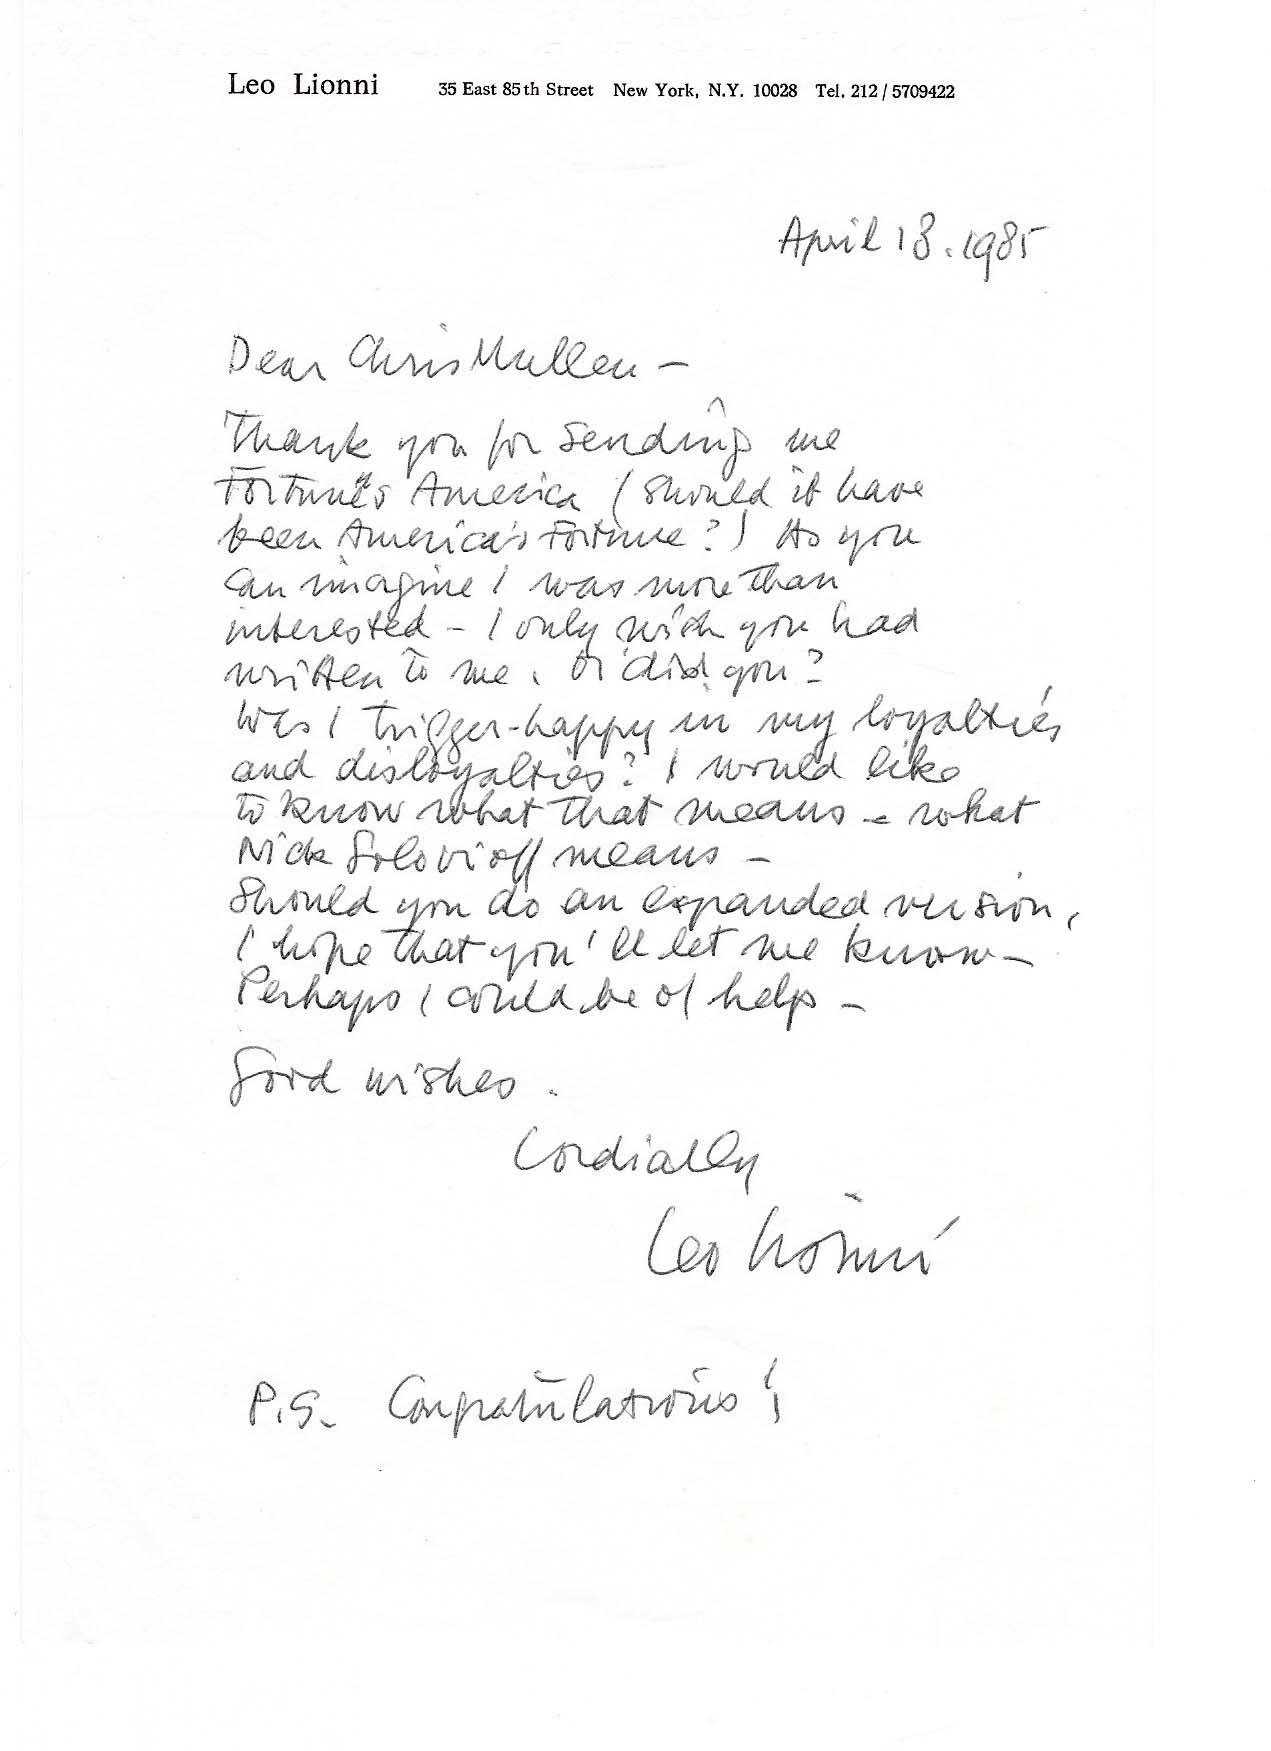 Leo Lionni 35 East 85th Street New York, N.Y. 10028 Tel. 212 / 5709422
April 18. 1985
Dear Chris Mullen –
Thank you for sending me
Fortune's America (Should it have
been America's Fortune?) As you
can imagine I was more than
interested – I only wish you had
written to me. Or did you?
Was I trigger-happy in my loyalties
and disloyalties? I would like
to know what that means – what
Nick Solovioff means –
Should you do an expanded version,
I hope that you'll let me know –
Perhaps I could be of help –
Good wishes.
Cordially
Leo Lionni
P.S. Congratulations!